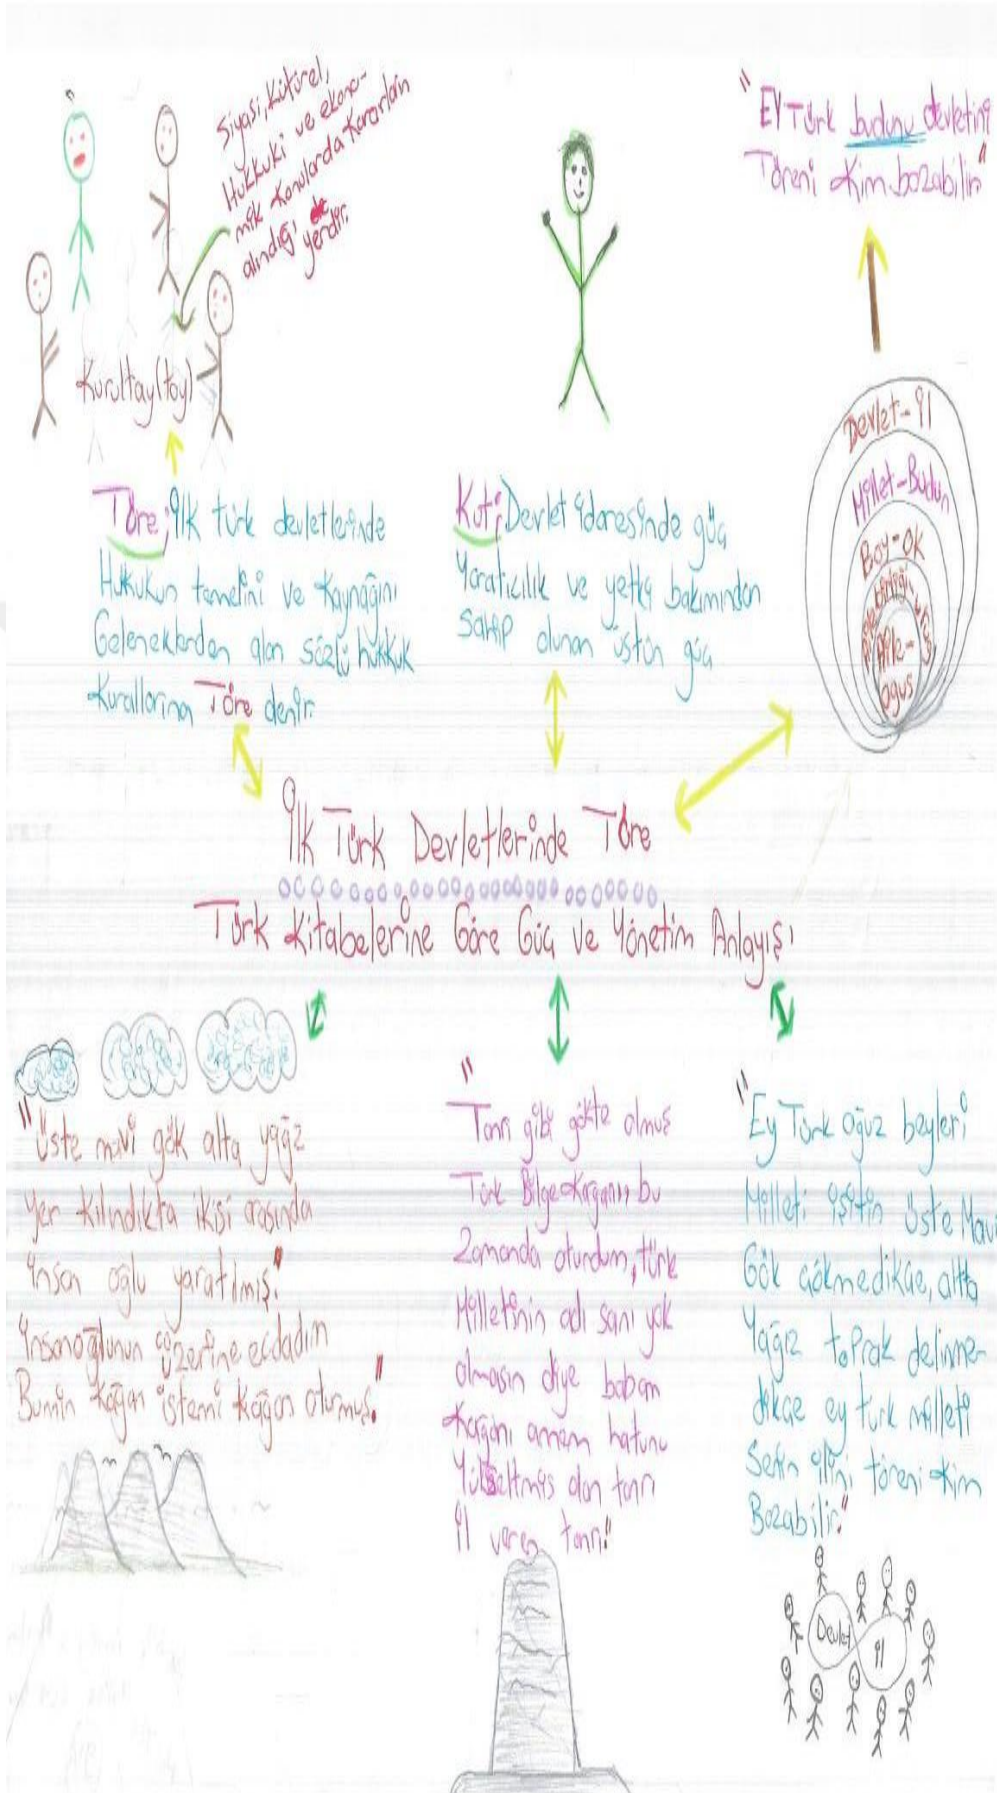 Siyasi, Kütürel,
Hukkuki ve ekono-
mik konularda kararların
alındığı
yerdir.
Kurultay(toy)
"EY Türk budunu devletini
Töreni kim bozabilir"
Devlet-il
Millet-Budun
Boy-Ok
Aile-
oguş
Töre; ilk türk devletlerinde
Hukukun temelini ve kaynağını
Geleneklerden alan sözlü hukkuk
kurallarına Töre denir.
Kut; Devlet idaresinde güç
Yaratıcılık ve yetki bakımından
sahip olunan üstün güç
İlk Türk Devletlerinde Töre
Türk Kitabelerine Göre Güç ve Yönetim Anlayışı
"üste mavi gök alta yağız
yer kılındıkta ikisi arasında
insan oğlu yaratılmış."
insanoğlunun üzerine ecdadım
Bumin kağan istemi kağan oturmuş."
"Tanrı gibi gökte olmuş
Türk Bilge Kağanı bu
Zamanda oturdum, türk
Milletinin adı sanı yok
olmasın diye babam
Kağanı annem hatunu
Yükseltmiş olan tanrı
il veren tanrı."
"Ey Türk oğuz beyleri
Milleti işitin üste Mavi
Gök çökmedikçe, altta
Yağız toprak delinme-
dikçe ey türk milleti
Senin ilini töreni kim
Bozabilir."
Devlet
il